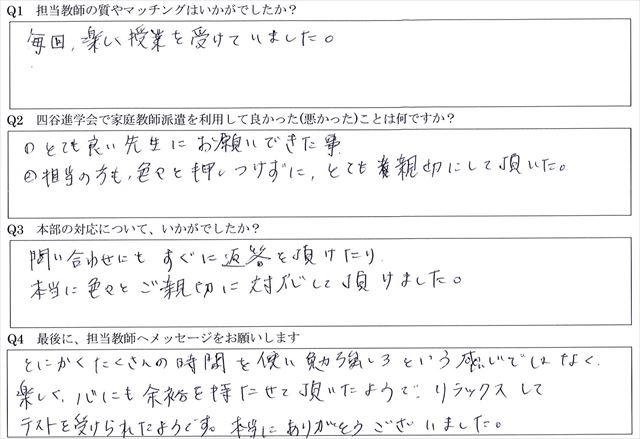 Q1 担当教師の質やマッチングはいかがでしたか？
毎回、楽しい授業を受けていました。
Q2 四谷進学会で家庭教師派遣を利用して良かった(悪かった)ことは何ですか？
①とても良い先生にお願いできた事
②担当の方も、色々と押しつけずに、とても親切にして頂いた。
Q3 本部の対応について、いかがでしたか？
問い合わせにもすぐに返答を頂けたり
本当に色々とご親切に対応して頂けました。
Q4 最後に、担当教師へメッセージをお願いします
とにかくたくさんの時間を使い勉強しろという感じではなく、
楽しく、心にも余裕を持たせて頂いたようで、リラックスして
テストを受けられたようです。本当にありがとうございました。